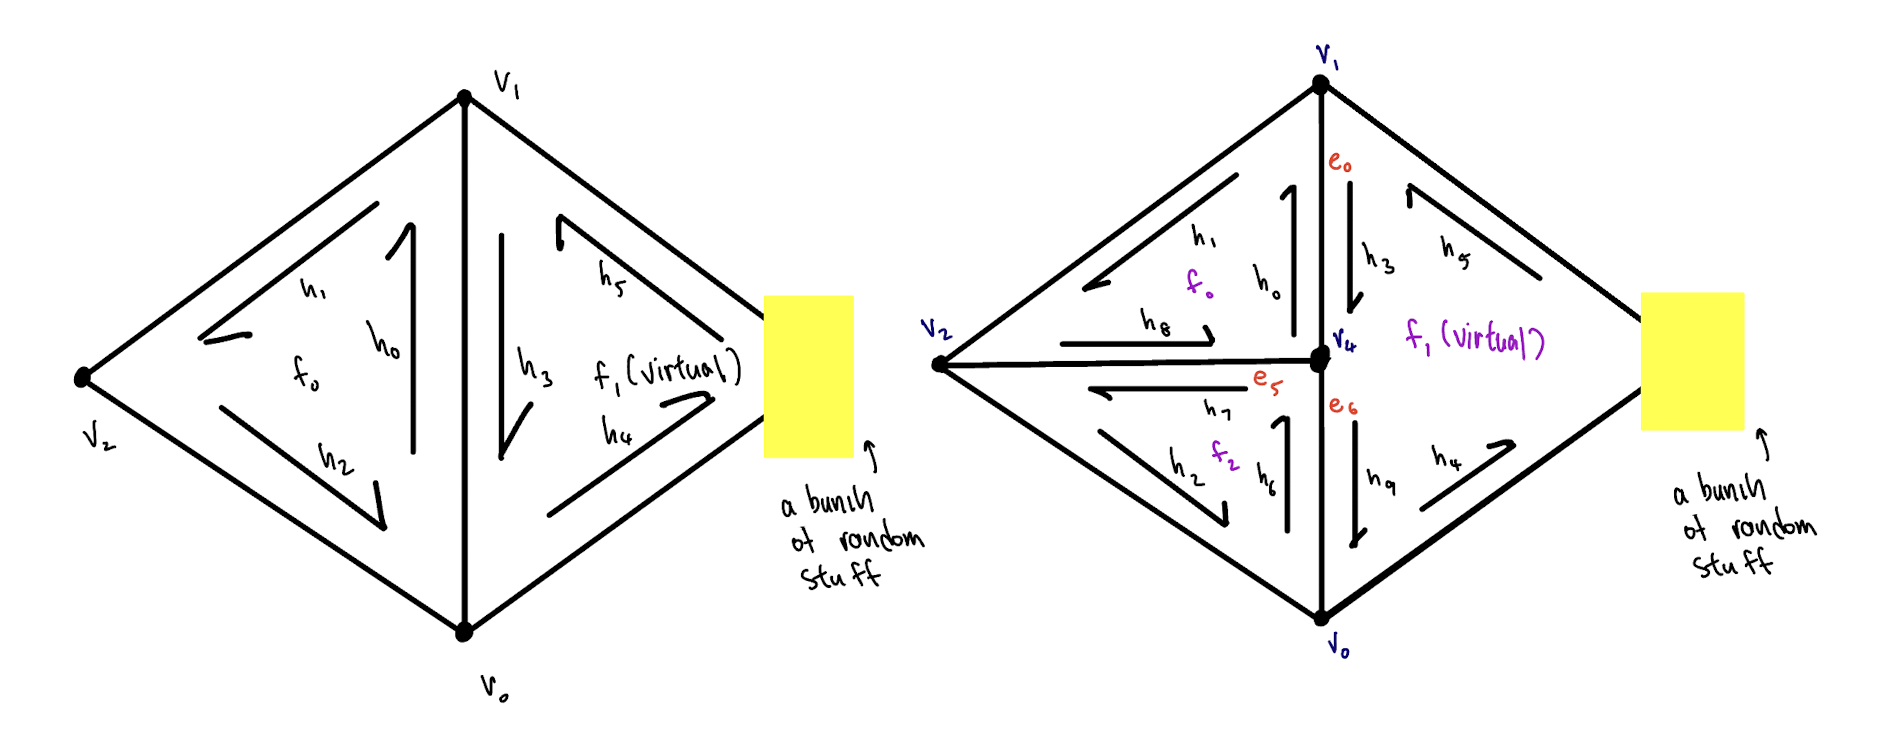 v₁
h₁
h₀
f₀
h₂
v₂
h₅
h₃
f₁ (virtual)
h₄
v₀
a bunch
of random
stuff
v₁
e₀
h₁
f₀
h₀
h₃
h₅
h₈
v₂
v₄
f₁ (virtual)
e₅
h₇
e₆
h₂
f₂
h₆
h₉
h₄
v₀
a bunch
of random
stuff